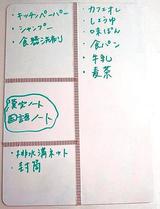 ・キッチンペーパー
・シャンプー
・食器洗剤
漢字ノート
国語ノート
・排水溝ネット
・封筒
・カフェオレ
・しょうゆ
・味ぽん
・食パン
・牛乳
・麦茶